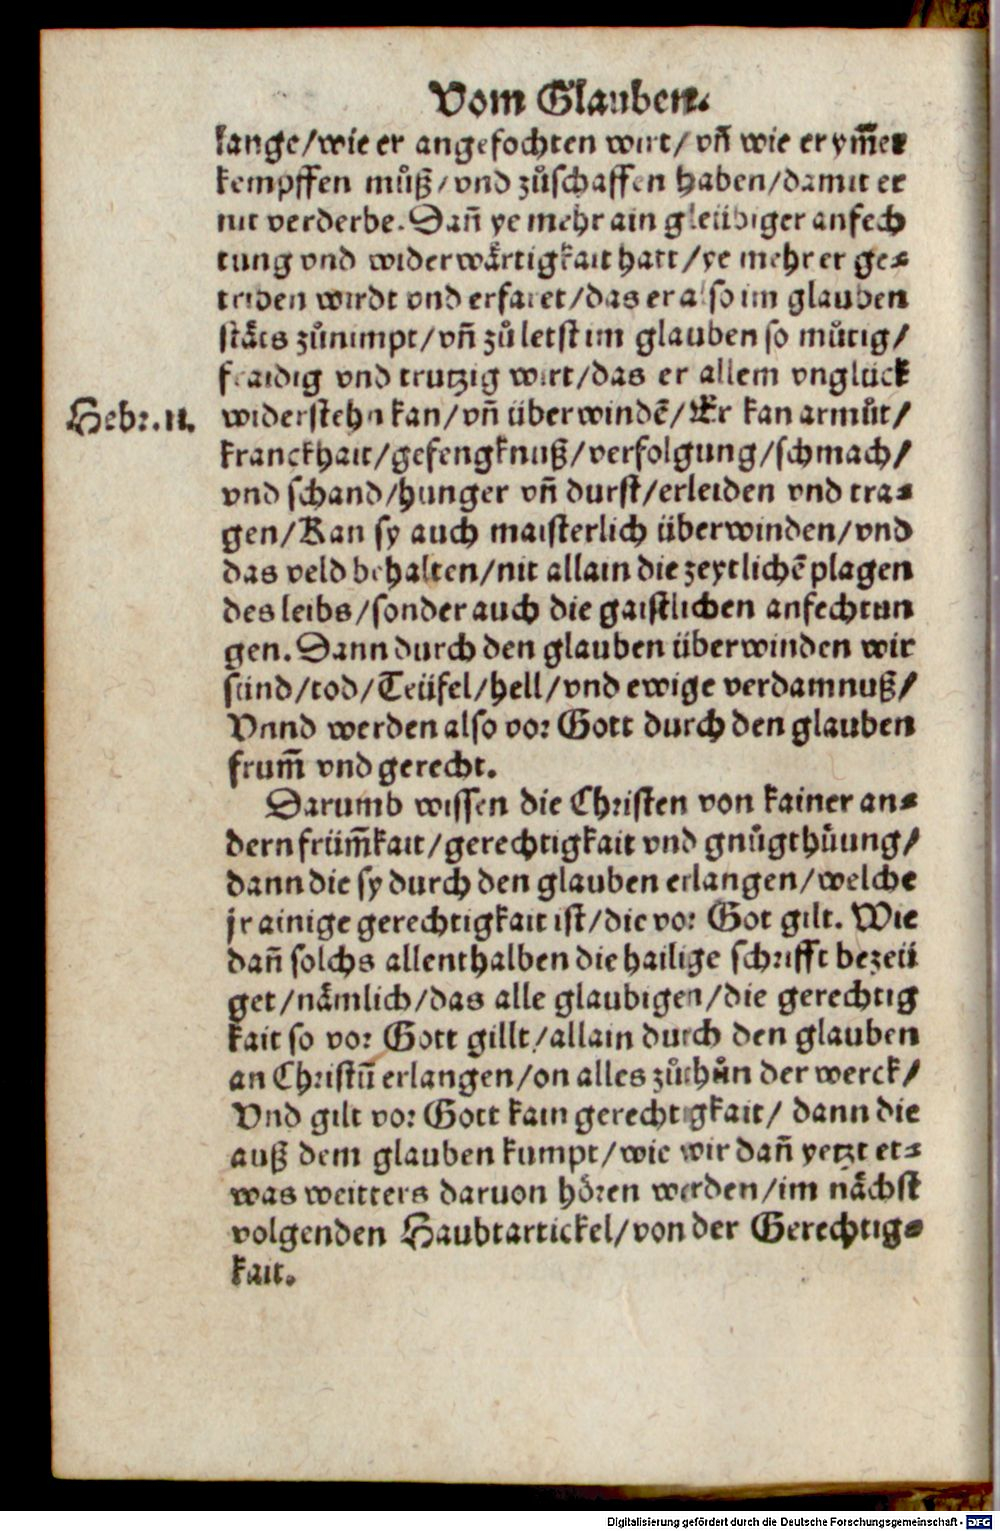 Vom Glauben.
lange/wie er angefochten wirt/vñ wie er ym̃er
kempffen můß/vnd zůschaffen haben/damit er
nit verderbe. Dañ ye mehr ain gleübiger anfech
tung vnd widerwårtigkait hatt/ye mehr er ge⸗
triben wirdt vnd erfaret/das er also im glauben
ståts zůnimpt/vñ zů letst im glauben so můtig/
fraidig vnd trutzig wirt/das er allem vnglück
Hebr. 11.
widerstehn kan/vñ überwindẽ/Er kan armůt/
kranckhait/gefengknuß/verfolgung/schmach/
vnd schand/hunger vñ durst/erleiden vnd tra⸗
gen/Kan sy auch maisterlich überwinden/vnd
das veld behalten/nit allain die zeytlichẽ plagen
des leibs/sonder auch die gaistlichen anfechtun
gen. Dann durch den glauben überwinden wir
sünd/tod/Teüfel/hell/vnd ewige verdamnuß/
Vnnd werden also vor Gott durch den glauben
frum̃ vnd gerecht.
Darumb wissen die Christen von kainer an⸗
dern früm̃kait/gerechtigkait vnd gnůgthůung/
dann die sy durch den glauben erlangen/welche
jr ainige gerechtigkait ist/die vor Got gilt. Wie
dañ solchs allenthalben die hailige schrifft bezeü
get/nåmlich/das alle glaubigen/die gerechtig
kait so vor Gott gillt/allain durch den glauben
an Christũ erlangen/on alles zůthůn der werck/
Vnd gilt vor Gott kain gerechtigkait/ dann die
auß dem glauben kumpt/wie wir dañ yetzt et⸗
was weitters daruon hören werden/im nåchst
volgenden Haubtartickel/von der Gerechtig⸗
kait.
Digitalisierung gefördert durch die Deutsche Forschungsgemeinschaft - DFG